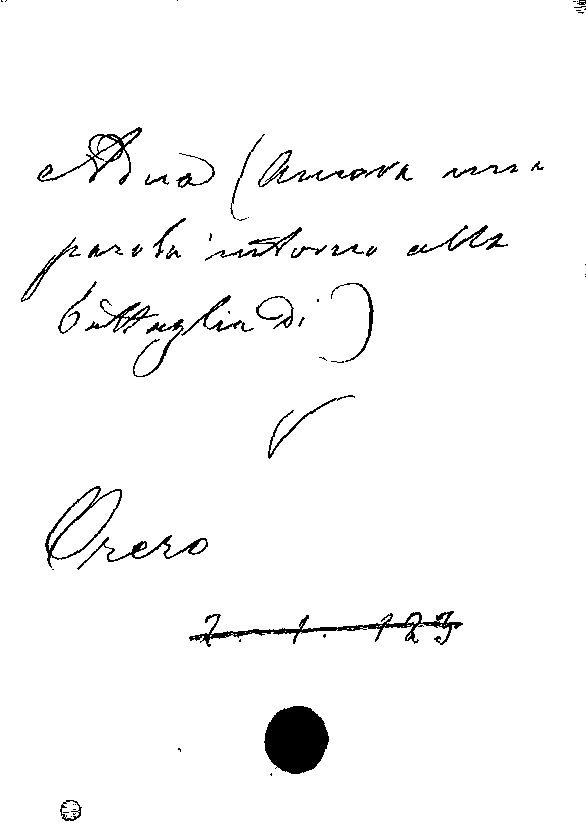 Adua (Ancora una
parola intorno alla
battaglia di)
V
Orero
2. 1. 123